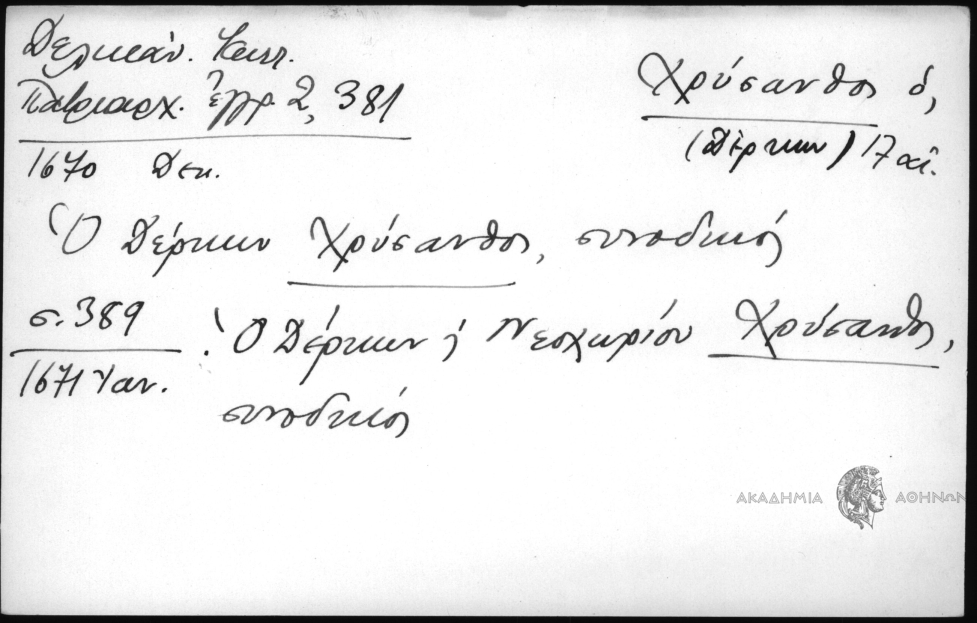 Δελικάν. Καλλ.
Πατριαρχ. Ἔγγρ. 2, 381
Χρύσανθος ὁ,
(Δέρκων) 17 αἰ.
1670 Δεκ.
Ὁ Δέρκων Χρύσανθος, συνοδικός
σ. 389
1671 Ἰαν.
Ὁ Δέρκων ἤ Νεοχωρίου Χρύσανθος,
συνοδικός
ΑΚΑΔΗΜΙΑ ΑΘΗΝΩΝ